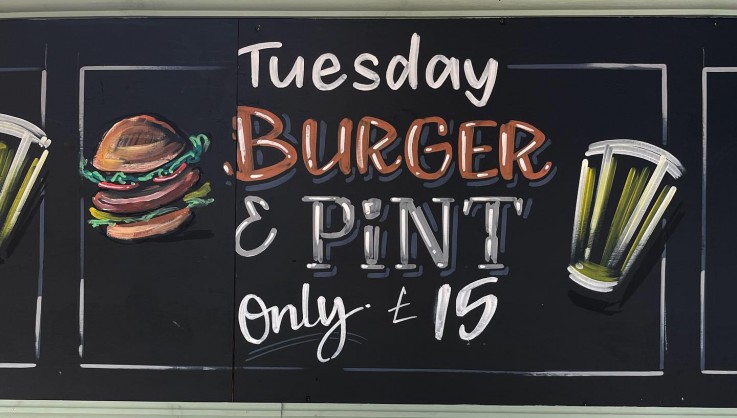 Tuesday
BURGER
& PiNT
Only. £15